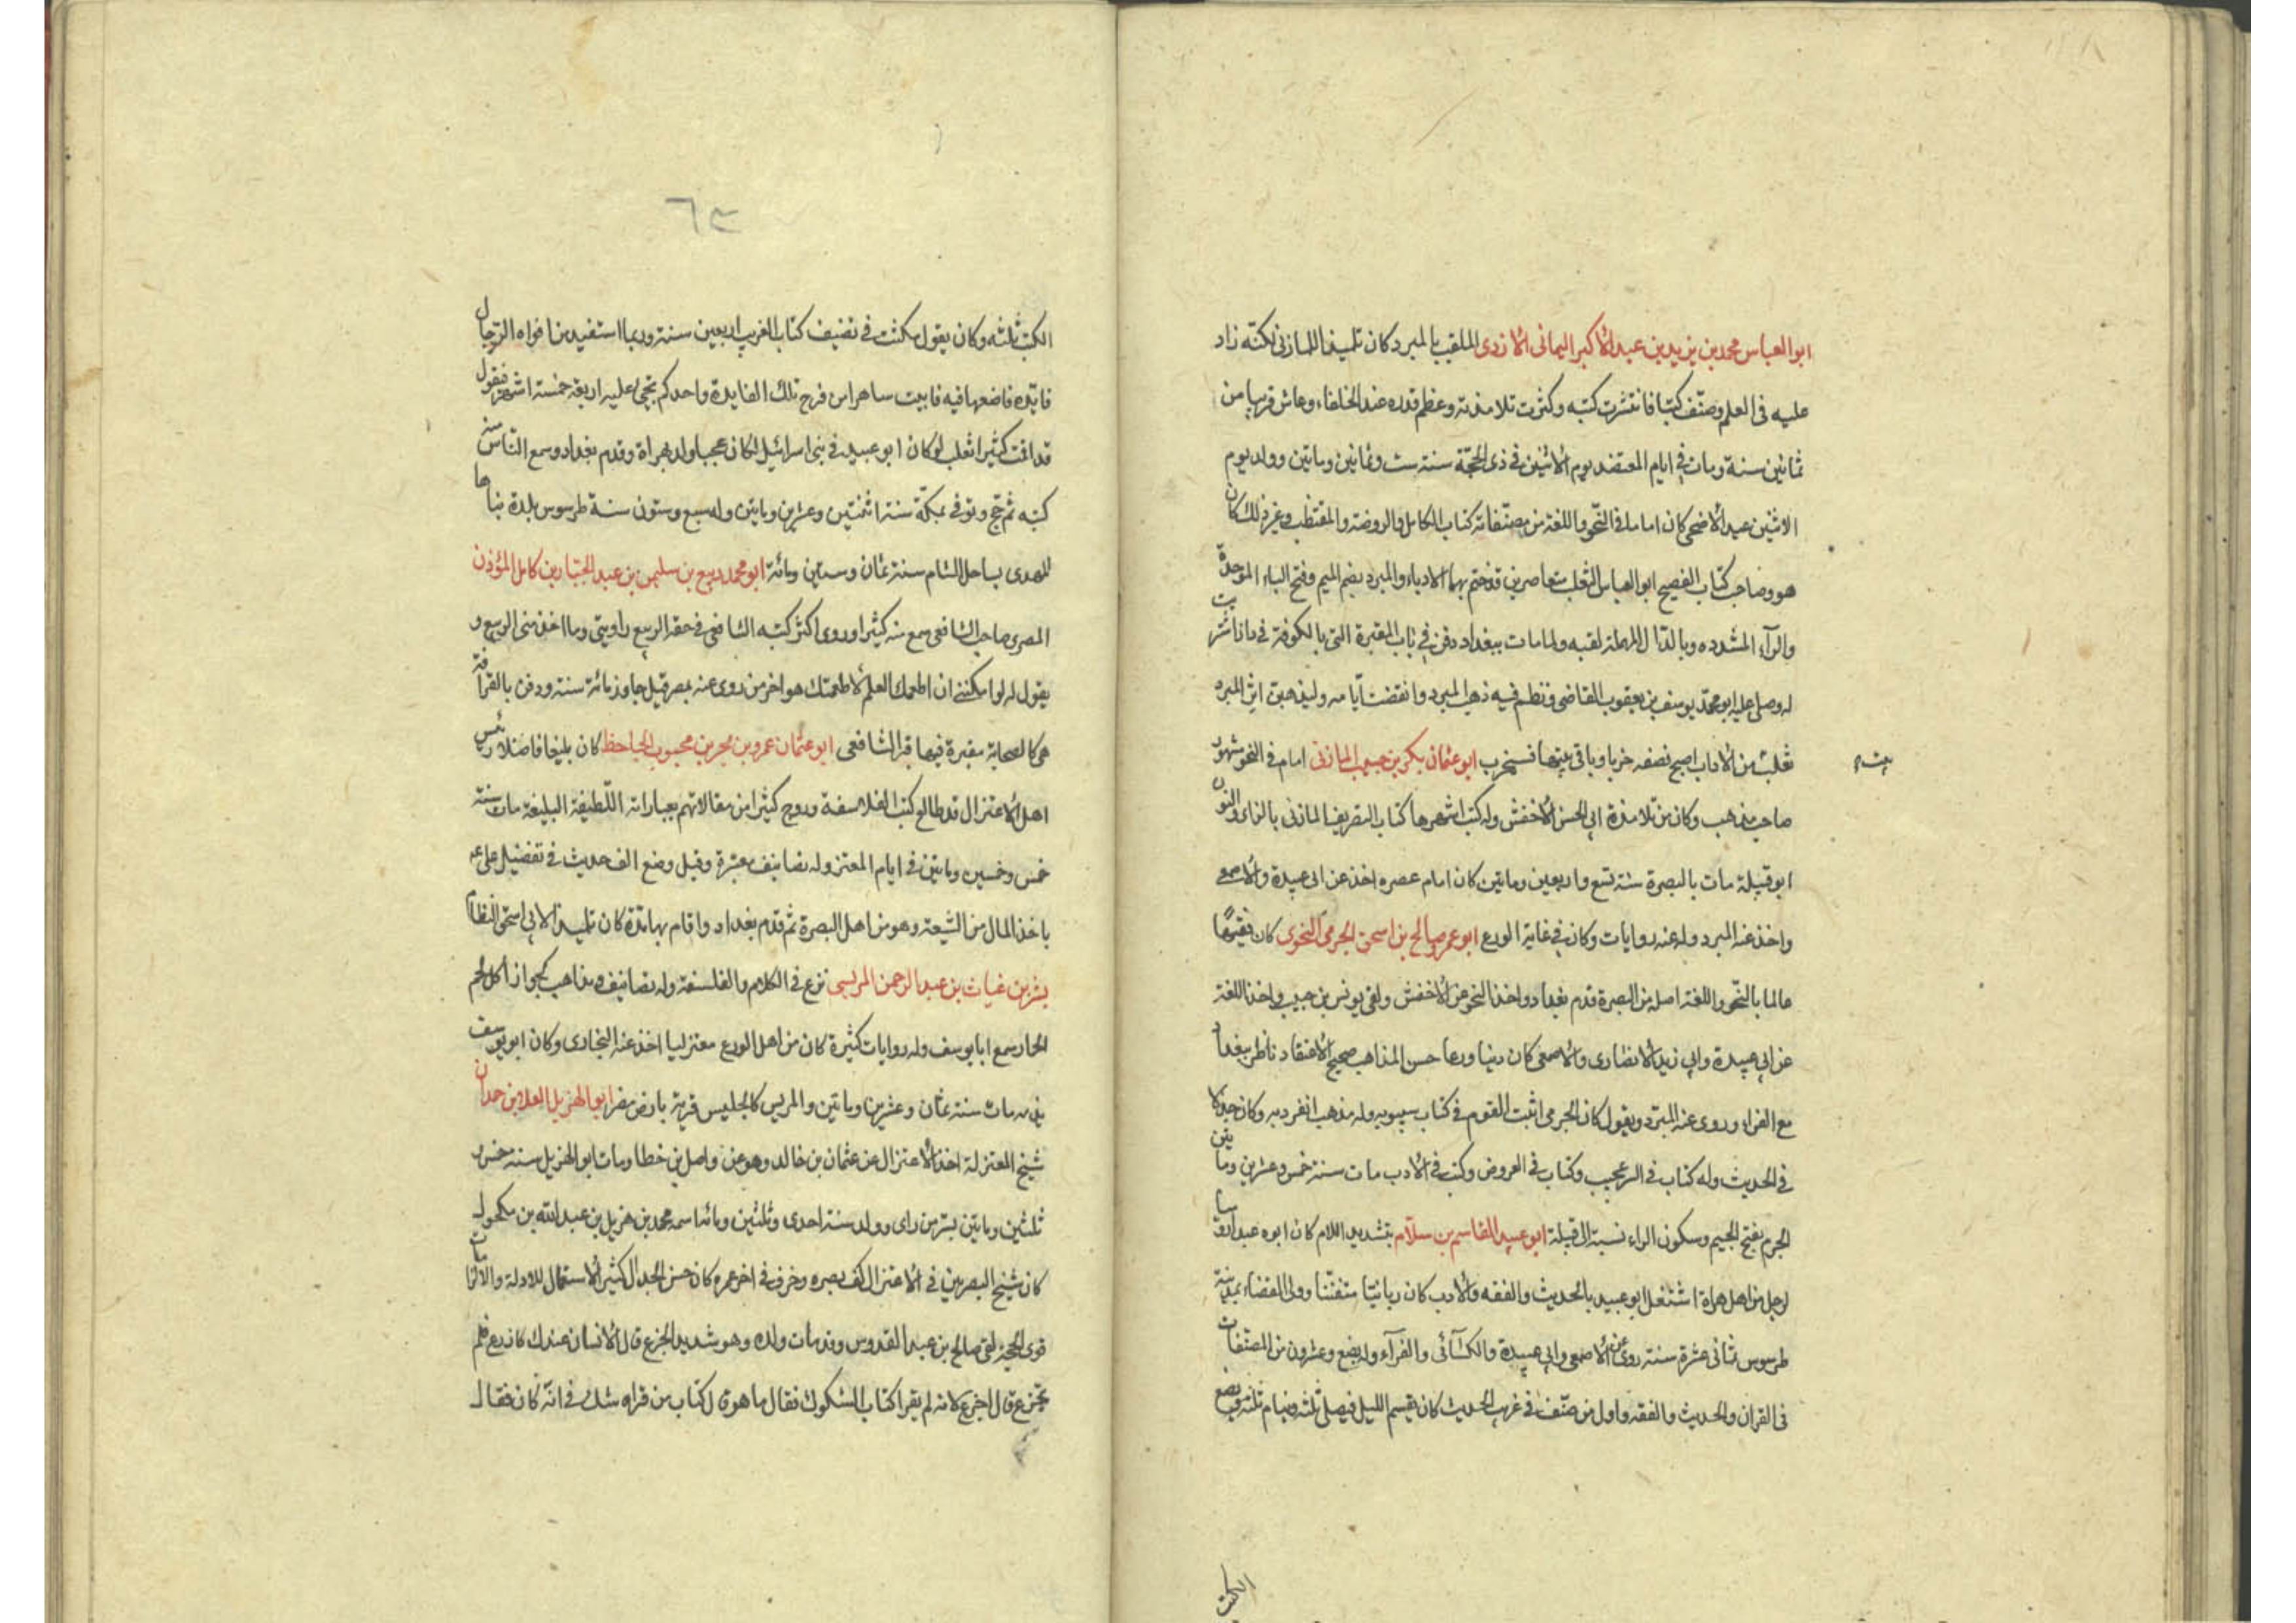 ابو العباس محمد بن يزيد بن عبد الأكبر اليمانى الازدى الملقب بالمبرد كان تلميذا للمازنى لكنّه زاد
عليه فى العلم وصنّف كتبا فانتشرت كتبه وكثرت تلامذته وعظم قدره عند الخلفاء وعاش قريبا من
ثمانين سنة ومات فى ايام المعتضد يوم الاثنين فى ذى الحجّة سنة ست وثمانين وماتين وولد يوم
الاثنين عيد الأضحى كان اماما فى النحو واللغة من مصنّفاته كتاب الكامل والروضة والمقتضب وغير ذلك كان
هو وصاحب كتاب الفصيح ابو العباس الثعلب متعاصرين قد ختم بهما الادباء والمبرد بضم الميم وفتح الباء الموحدة
والرآء المشدده وبالدّال المهملة لقبه ولما مات ببغداد دفن فى باب المقبرة التى بالكوفة فى دار اشتريت
له وصلى عليه ابو محمّد يوسف بن يعقوب القاضى ونظم فيه ذهب المبرد وانقضت ايّامه وليذهبن اثر المبرد
ثعلب من الاداب اصبح نصفه خربا وباقى بيتها فسيخرب ابو عثمان بكر بن حبيب المازنى امام فى النحو مشهور
بيت
صاحب مذهب وكان من تلامذة ابى الحسن الأخفش وله كتب اشهرها كتاب التصريف المازنى بالزاء والنون
ابو قبيلة مات بالبصرة سنة تسع واربعين وماتين كان امام عصره اخذ عن ابى عبيدة والاصمعى
واخذ عنه المبرد وله عنه روايات وكان فى غاية الورع ابو عمر صالح بن اسحق الجرمى النحوى كان فقيهًا
عالما بالنحّو واللغة اصله من البصرة قدم بغداد واخذ النحو عن الأخفش ولقى يونس بن حبيب واخذ اللغة
عن ابى عبيدة وابى زيد الأنصارى والأصمعى كان دينا ورعا حسن المذاهب صحيح الأعتقاد ناظر ببغداد
مع الفراء وروى عنه المبّرد ويقول كان الجرمى اثبت القوم فى كتاب سيبويه وله مذهب انفرد به وكان جليلا
فى الحديث وله كتاب فى السير عجيب وكتاب فى العروض وكتب فى الأدب مات سنة خمس وعشرين وماتين
الجرم بفتح الجيم وسكون الراء نسبة الى قبيلة ابو عبيد القاسم بن سلّام بتشديد اللام كان ابوه عبدا روميا
لرجل من اهل هراة اشتغل ابو عبيد بالحديث والفقه والأدب كان ربانيّا متفنّنا وولى القضاء بمدينة
طرسوس ثمانى عشرة سنة روى عن الأصمعى وابى عبيدة والكسآئى والفرآء وله بضع وعشرون من المصنّفات
فى القران والحديث والفقه واول من صنّف فى غريب الحديث كان يقسم الليل فيصلى ثلثه وينام ثلثه ويضع
الكتب
٦٣
الكتب ثلثه وكان يقول مكثت فى تصنيف كتاب الغريب اربعين سنة وربما استفيد من افواه الرّجال
فايّدة فاضعها فيه فابيت ساهرا من فرح تلك الفايدة واحدكم يجئ عليه اربعة خمسة اشهر فيقول
قد اقمت كثيرا ثعلب لو كان ابو عبيد فى بنى اسرائيل لكان عجبا ولد بهراة وقدم بغداد وسمع النّاس منه
كتبه ثم حج وتوفى بمكّة سنة اثنتين وعشرين وماتين وله سبع وستون سنة طرسوس بلدة بناها
المهدى بساحل الشام سنة ثمان وستين ومائة ابو محمد ربيع بن سليمن بن عبد الجبّار بن كامل المؤذن
المصرى صاحب الشافعى سمع منه كثيرا وروى اكثر كتبه الشافعى فى حقه الربيع راويتى وما اخذ منى الربيع و
يقول له لو امكننى ان اطعمك العلم لأطعمتك هو اخر من روى عنه بمصر قيل جاوز مائة سنة ودفن بالقرافة
هى كالصحابة مقبرة فيها قبر الشافعى ابو عثمان عمرو بن بحر بن محبوب الجاحظ كان بليغا فاضلا رئيس
اهل الأعتزال قد طالع كتب الفلاسفة وروج كثيرا من مقالاتهم بعباراته اللّطيفة البليغة مات سنة
خمس وخمسين وماتين فى ايام المعتز وله تصانيف معتبرة وقيل وضع الف حديث فى تفضيل على عم
باخذ المال من الشيعة وهو من اهل البصرة ثم قدم بغداد واقام بها مدّة كان تلميذا لابى اسحق النظام
بشر بن غياث بن عبد الرحمن المريسى نزع فى الكلام والفلسفة وله تصانيف ومذاهب كجواز اكل لحم
الحمار سمع ابا يوسف وله روايات كثيرة كان من اهل الورع معتزليا اخذ عنه النجارى وكان ابو يوسف
يذمه مات سنة ثمان وعشرين وماتين والمريس كالجليس قرية بارض مصر ابو الهزيل العلا بن حدان
شيخ المعتزلة اخذ الأعتزال عن عثمان بن خالد وهو عن واصل بن خطا ومات ابو الهزيل سنة خمس و
ثلثين وماتين بسّر من راى وولد سنة احدى وثلثين ومائة اسمه محمد بن هزيل بن عبد الله بن مكحول
كان شيخ البصريين فى الأعتزال كف بصره وخرف فى اخر عمره كان حسن الجدال كثير الأستعمال للادلة والالزامات
قوى الحجة لقى صالح بن عبد القدوس وقد مات ولده وهو شديد الجزع قال الأنسان عندك كالزرع فلم
تجزع قال اجزع لانه لم يقرا كتاب الشكوك فقال ما هو قال كتاب من قراه شك فى انّه كان فقال